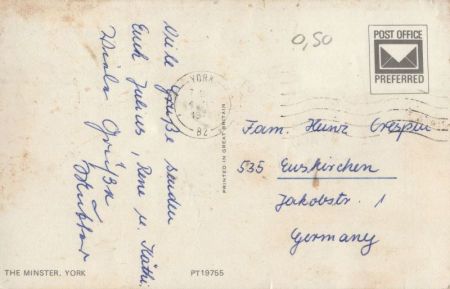 0,50
POST OFFICE
PREFERRED
YORK
82
Viele Grüße senden
Euch Julius, Rene u. Käthi.
Viele Grüße
Mutter
PRINTED IN GREAT BRITAIN
Fam. Heinz Crespin
535 Euskirchen
Jakobstr. 1
Germany
THE MINSTER, YORK
PT19755